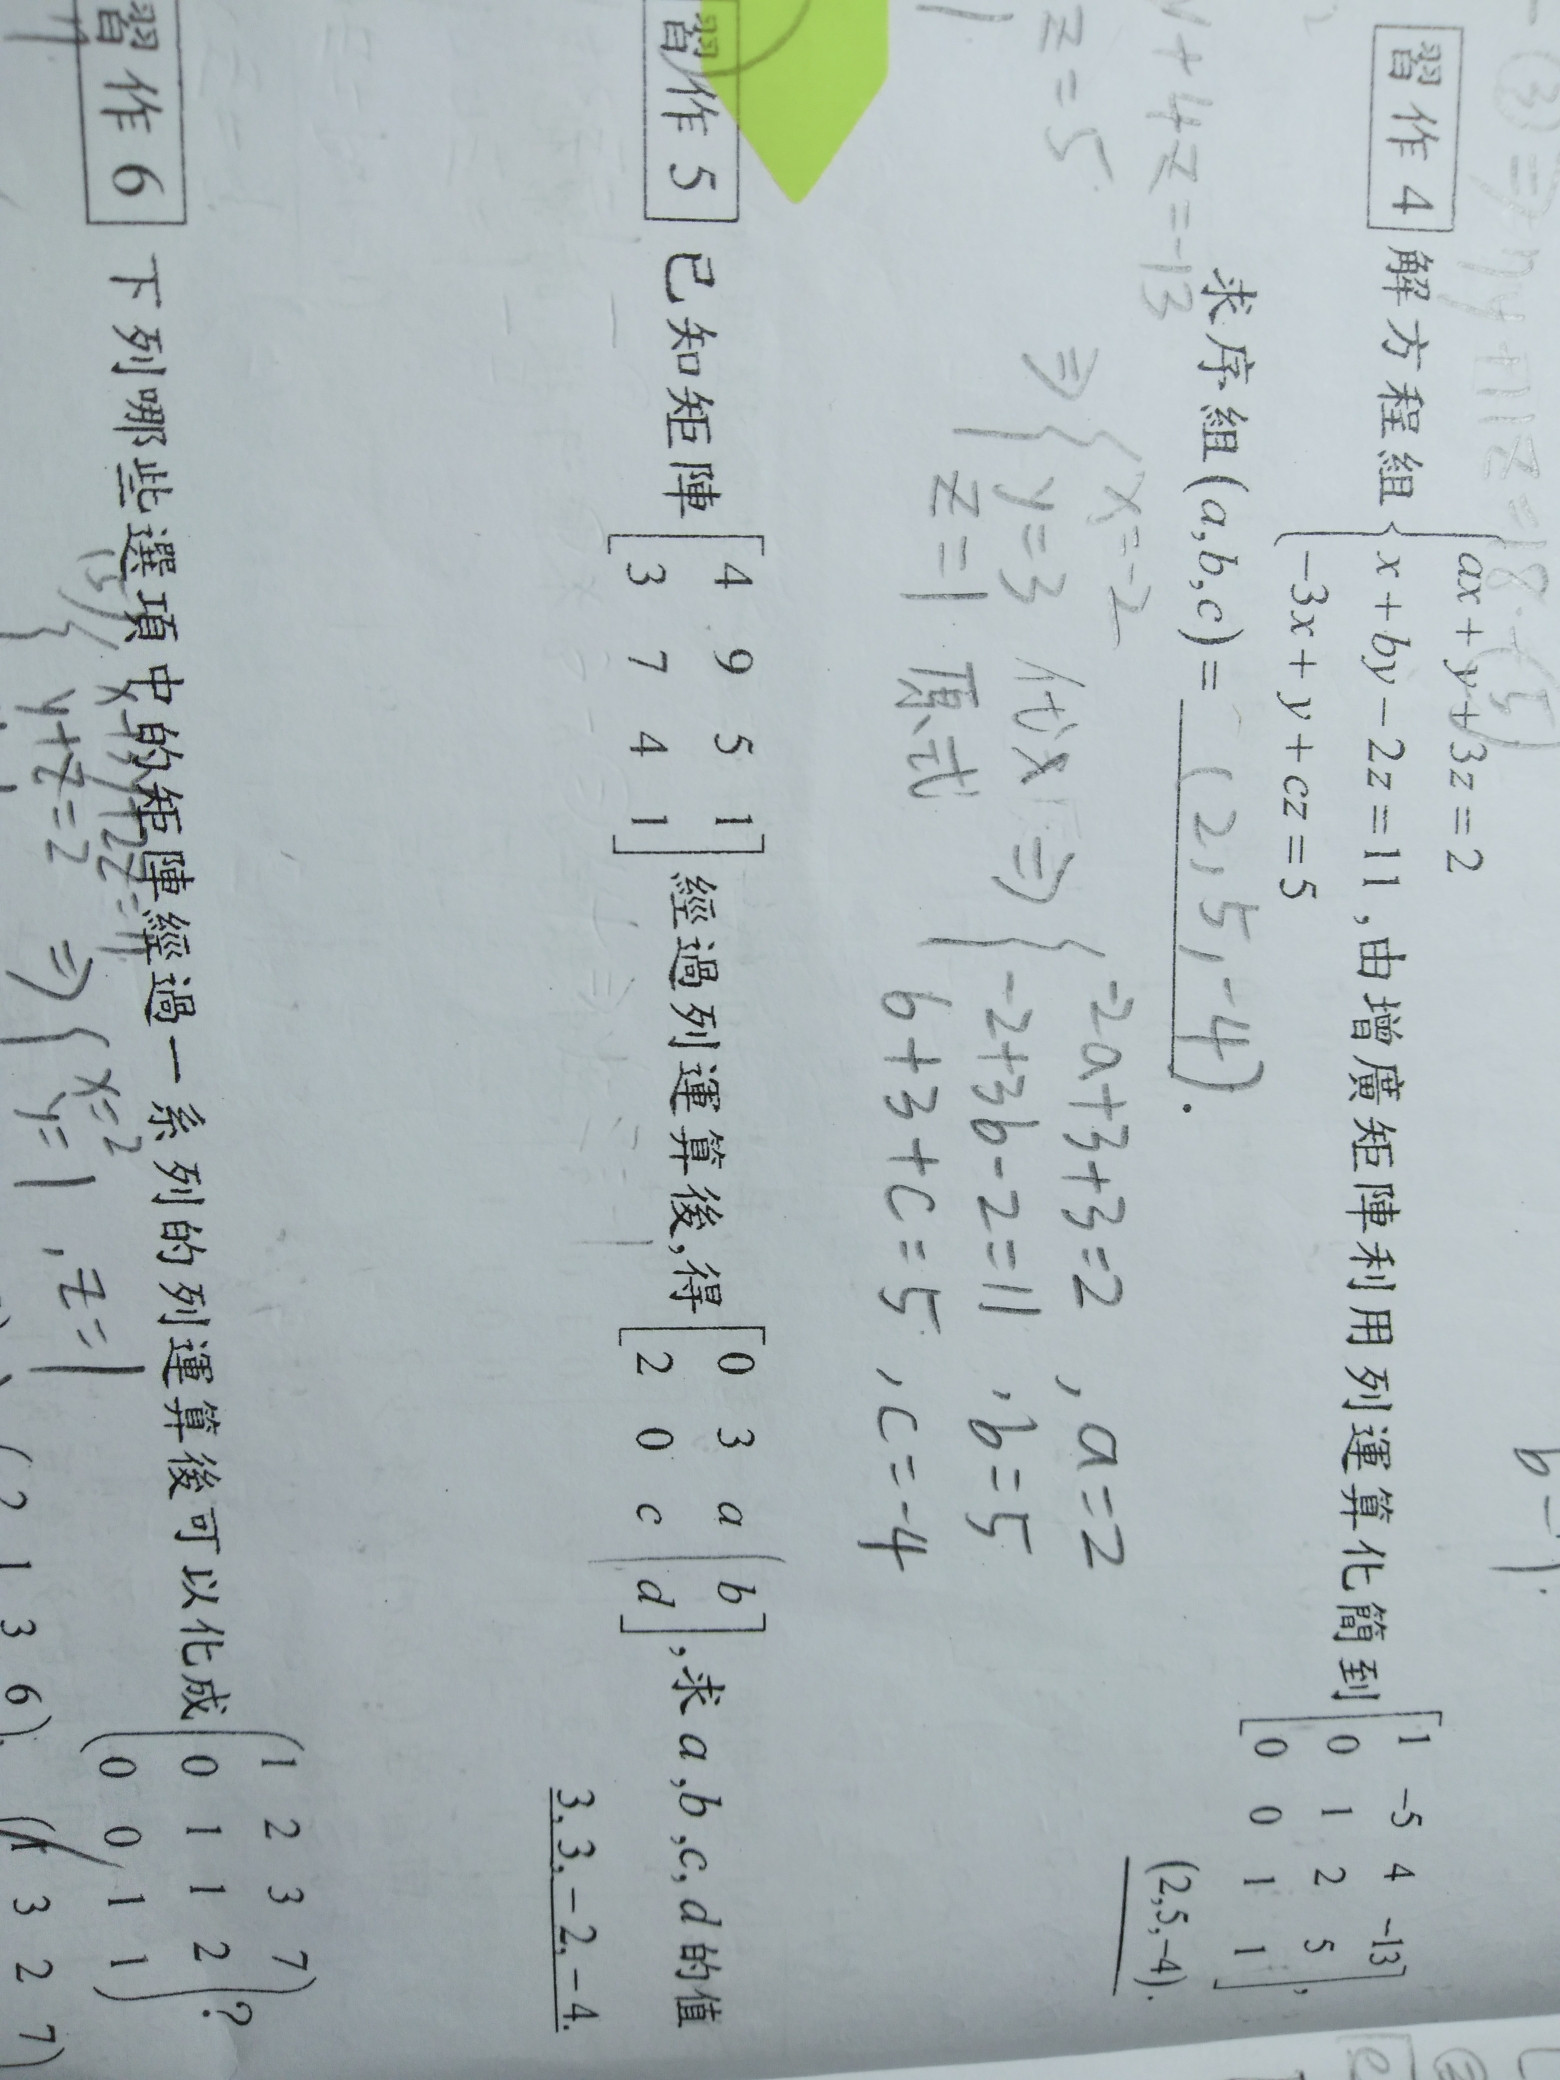 習作 4 解方程組 { ax + y + 3z = 2
x + by − 2z = 11
−3x + y + cz = 5 ,由增廣矩陣利用列運算化簡到 [ 1 -5 4 -13
0 1 2 5
0 0 1 1 ],
求序組(a,b,c)= (2,5,-4).
(2,5,−4).
y+4z=-13
z=5
⇒ { x=-2
y=3
z=1 代入原式 ⇒ { -2a+3+3=2 , a=2
-2+3b-2=11 , b=5
6+3+c=5 , c=-4
習作 5 已知矩陣 [ 4 9 5 1
3 7 4 1 ] 經過列運算後,得 [ 0 3 a b
2 0 c d ],求a,b,c,d的值
3,3,−2,−4.
習作 6 下列哪些選項中的矩陣經過一系列的列運算後可以化成 ( 1 2 3 7
0 1 1 2
0 0 1 1 )?
y+z=2 ⇒ { x=2
y=1 , z=1
(2 1 3 6) (1 3 2 7)